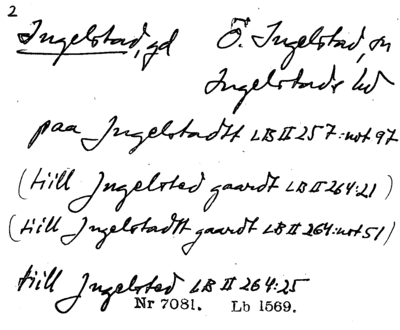 2
Ingelstad, gd Ö. Ingelstad, sn
Ingelstads hd
paa Jngelstadtt LB II 257:not 97
(tiill Jngelsted gaardt LB II 264:21)
(tiill Jngelstadtt gaardt LB II 264:not 51)
tiill Jngelsted LB II 264:25
Nr 7081. Lb 1569.